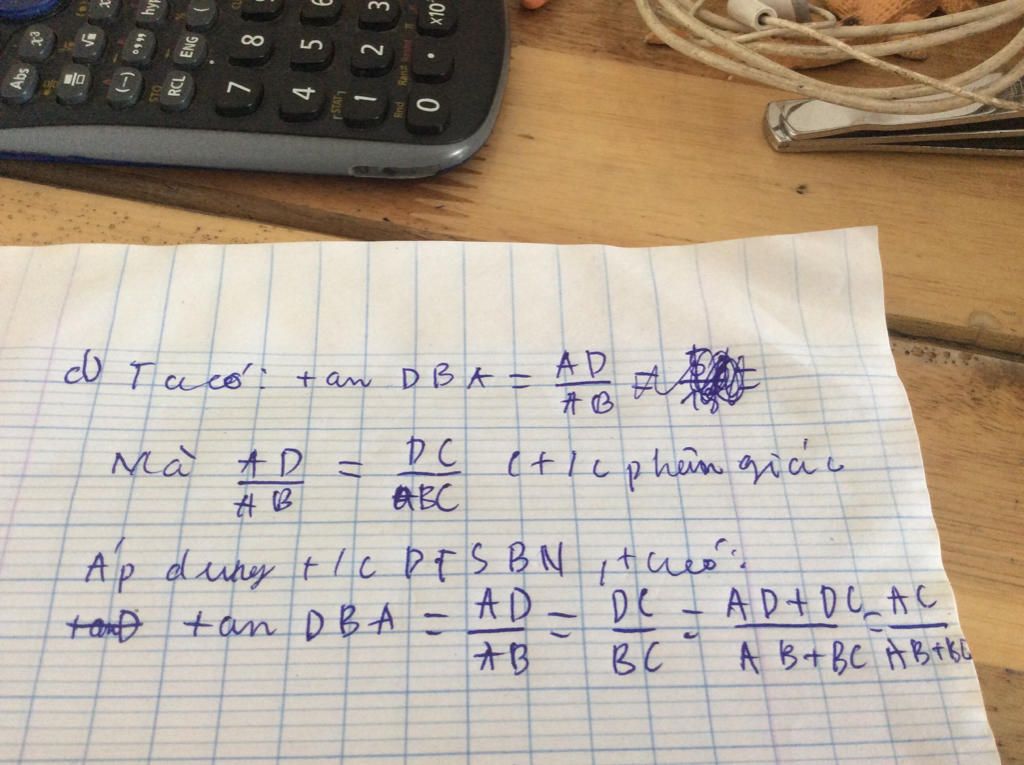 Abs x³ √■ °,,, hyp (-) RCL ENG (
7 8 4 5 6 1 2 3 0 . x10ˣ
STO STAT Rnd Ran#
d) Ta có: tan DBA = AD/AB =
Mà AD/AB = DC/BC (t/c phân giác
Áp dụng t/c DTSBN, ta có:
tan DBA = AD/AB = DC/BC = AD+DC/AB+BC = AC/AB+BC